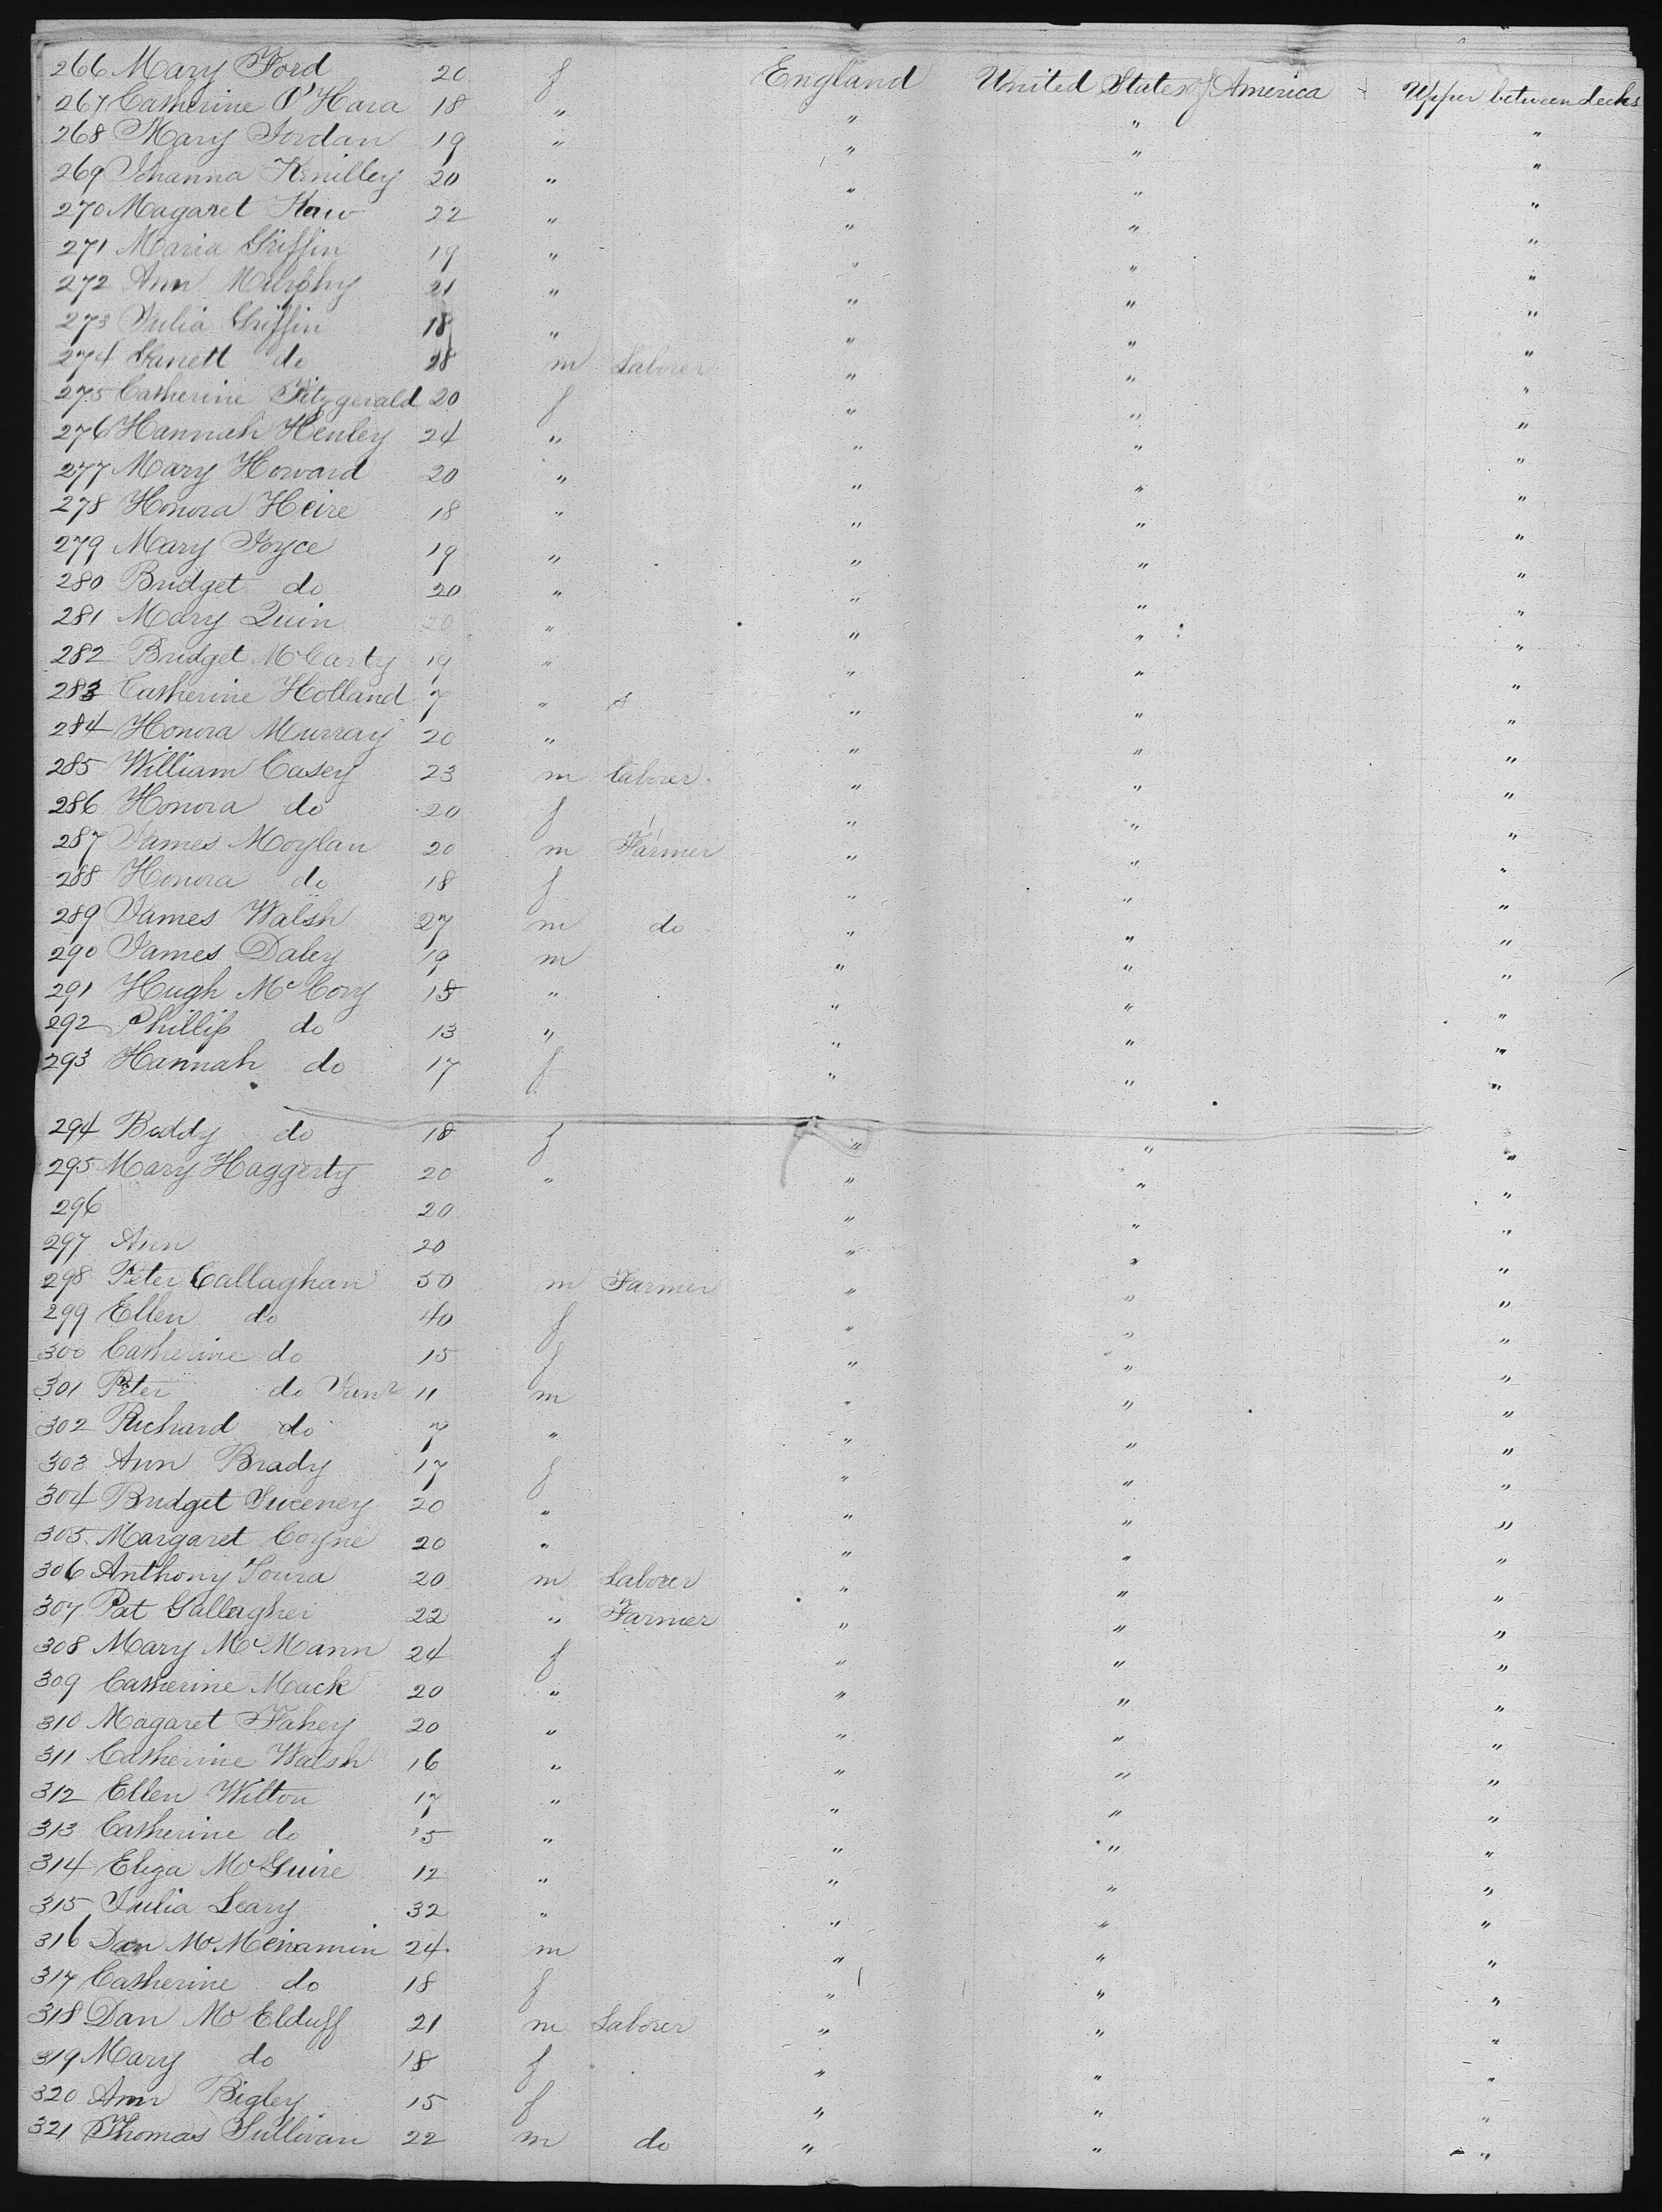 266 Mary Ford 20 f England United States of America Upper between decks
267 Catherine O'Hara 18 " " " "
268 Mary Jordan 19 " " " "
269 Johanna 20 " " " "
270 Magaret 22 " " " "
271 Maria Griffin 19 " " " "
272 Ann Murphy 21 " " " "
273 Julia Griffin 18 " " " "
274 do 28 m Laborer " " "
275 Catherine Fitzgerald 20 f " " "
276 Hannah Henley 24 " " " "
277 Mary Howard 20 " " " "
278 Honora Heire 18 " " " "
279 Mary Joyce 19 " " " "
280 Bridget do 20 " " " "
281 Mary Quin 20 " " " "
282 Bridget McCarty 19 " " " "
283 Catherine Holland 7 " " " "
284 Honora Murray 20 " " " "
285 William Casey 23 m laborer " " "
286 Honora do 20 f " " "
287 James Moylan 20 m Farmer " " "
288 Honora do 18 f " " "
289 James Walsh 27 m do " " "
290 James Daley 19 m " " "
291 Hugh McCory 15 " " " "
292 Phillip do 13 " " " "
293 Hannah do 17 f " " "
294 Biddy do 18 f " " "
295 Mary Haggerty 20 " " " "
296 20 " " "
297 Ann 20 " " "
298 Peter Callaghan 50 m Farmer " " "
299 Ellen do 40 f " " "
300 Catherine do 15 f " " "
301 Peter do Junr 11 m " " "
302 Richard do 7 " " " "
303 Ann Brady 17 f " " "
304 Bridget Sweeney 20 " " " "
305 Margaret Coyne 20 " " " "
306 Anthony 20 m Laborer " " "
307 Pat Gallagher 22 " Farmer " " "
308 Mary McMann 24 f " " "
309 Catherine Mack 20 " " " "
310 Magaret Fahey 20 " " " "
311 Catherine Walsh 16 " " " "
312 Ellen Wilton 17 " " " "
313 Catherine do 15 " " " "
314 Eliza McGuire 12 " " " "
315 Julia Leary 32 " " " "
316 Dan McMenamin 24 m " " "
317 Catherine do 18 f " " "
318 Dan McElduff 21 m Laborer " " "
319 Mary do 18 f " " "
320 Ann Bigley 15 f " " "
321 Thomas Sullivan 22 m do " " "